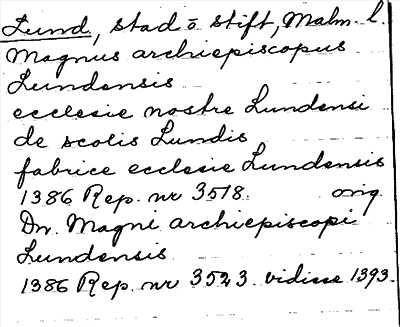 Lund, stad o. stift, Malm. l.
Magnus archiepiscopus
Lundensis
ecclesie nostre Lundensi
de scolis Lundis
fabrice ecclesie Lundensis
1386 Rep. nr 3518. orig.
Dn. Magni archiepiscopi
Lundensis
1386 Rep. nr 3523. vidisse 1393.